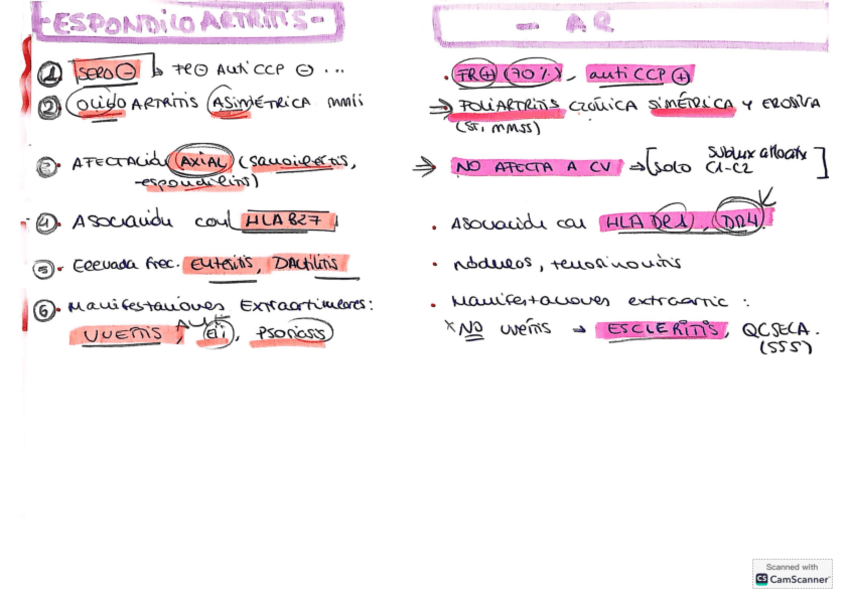 - ESPONDILO ARTRITIS -
① SERO ⊖ ↳ FR ⊖ Anti CCP ⊖ ...
② OLIGO ARTRITIS ASIMÉTRICA mmii
③. AFECTACIÓN AXIAL (sacroileitis,
espondilitis)
④. ASOCIACIÓN con HLA B27
⑤. Elevada frec. ENTESITIS, DACTILITIS
⑥. Manifestaciones Extraarticulares:
UVEITIS, EII, PSORIASIS
- AR
. FR ⊕ (70%), anti CCP ⊕
⇒ POLIARTRITIS CRÓNICA SIMÉTRICA Y EROSIVA
MMSS)
⇒ NO AFECTA A CV ⇒ [solo sublux atloax C1-C2]
. Asociación con HLA DR1, DR4.
. nódulos, tenosinovitis
. Manifestaciones extraartic :
* NO uveítis → ESCLERITIS, QCSECA.
(SSS)
Scanned with
CS CamScanner